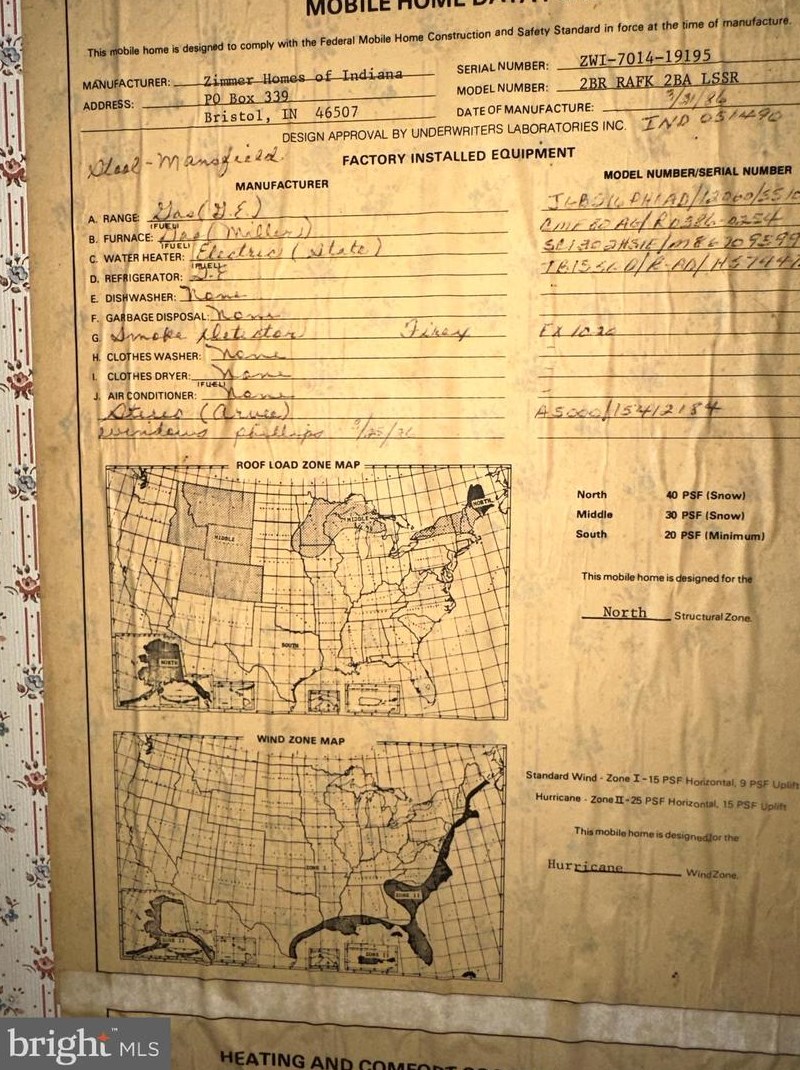 MOBILE HOME DATA
This mobile home is designed to comply with the Federal Mobile Home Construction and Safety Standard in force at the time of manufacture.
MANUFACTURER: Zimmer Homes of Indiana
ADDRESS: PO Box 339
Bristol, IN 46507
SERIAL NUMBER: ZWI-7014-19195
MODEL NUMBER: 2BR RAFK 2BA LSSR
DATE OF MANUFACTURE: 3/31/86
DESIGN APPROVAL BY UNDERWRITERS LABORATORIES INC. IND 031490
FACTORY INSTALLED EQUIPMENT
MANUFACTURER
MODEL NUMBER/SERIAL NUMBER
A. RANGE: Gas (G.E)
(FUEL)
B. FURNACE: Gas (Miller)
(FUEL)
C. WATER HEATER: Electric (State)
(FUEL)
D. REFRIGERATOR: G-E
E. DISHWASHER: None
F. GARBAGE DISPOSAL: None
G. Smoke Detector Firex FX 1020
H. CLOTHES WASHER: None
I. CLOTHES DRYER: None
(FUEL)
J. AIR CONDITIONER: None
windows phillips
ROOF LOAD ZONE MAP
NORTH
MIDDLE
MIDDLE
SOUTH
NORTH
North 40 PSF (Snow)
Middle 30 PSF (Snow)
South 20 PSF (Minimum)
This mobile home is designed for the
North Structural Zone.
WIND ZONE MAP
ZONE I
ZONE II
ZONE II
Standard Wind - Zone I - 15 PSF Horizontal, 9 PSF Uplift
Hurricane - Zone II - 25 PSF Horizontal, 15 PSF Uplift
This mobile home is designed for the
Hurricane Wind Zone.
HEATING AND COMFORT
bright™ MLS